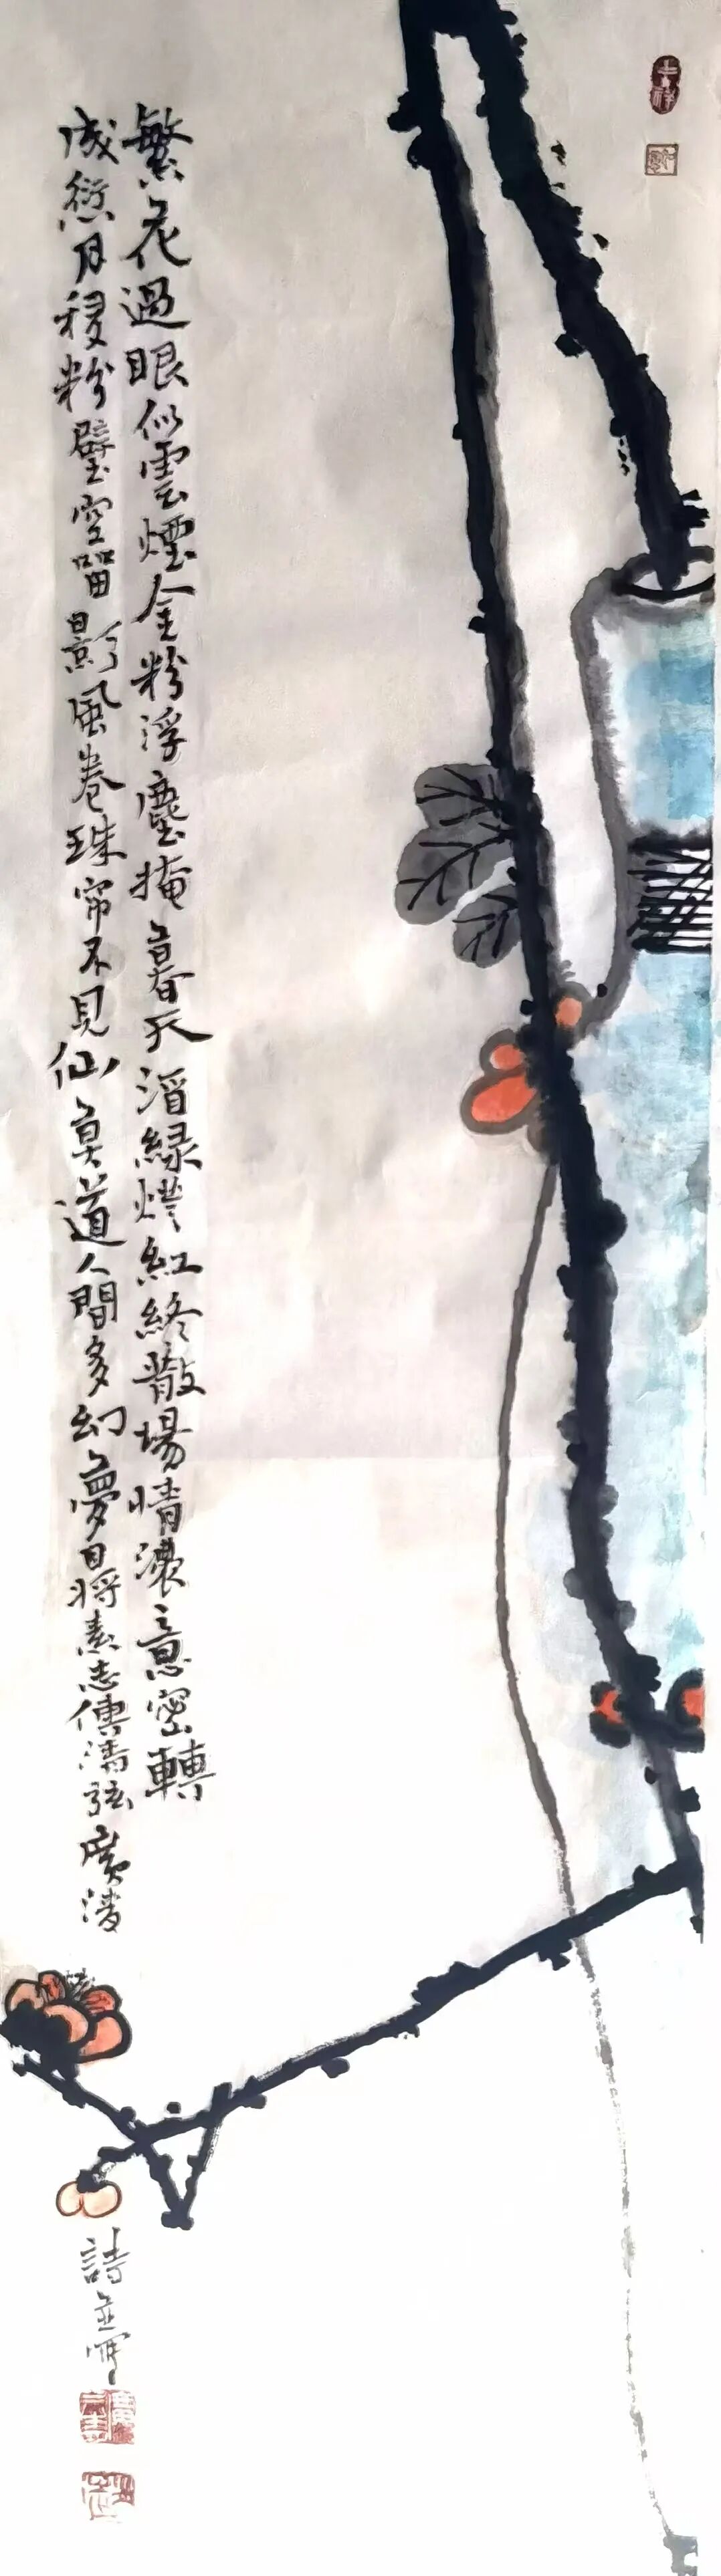 繁花過眼似雲煙金粉浮塵掩暮天酒緑燈紅終散場情濃意密轉
成愆月移粉壁空留影風卷珠帘不見仙莫道人間多幻夢且將素志傳清弦廣
詩並寫